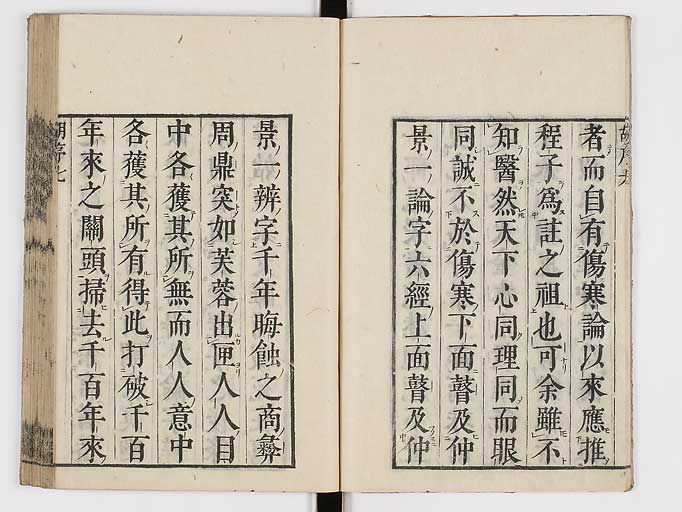 者而自有傷寒論以來應推
程子爲註之祖也可余雖不
知醫然天下心同理同而眼
同誠不於傷寒下面瞽及仲
景一論字六經上面瞽及仲
景一辨字千年晦蝕之商彝
周鼎突如芙蓉出匣人人目
中各獲其所無而人人意中
各獲其所有得此打破千百
年來之關頭掃去千百年來
胡序七